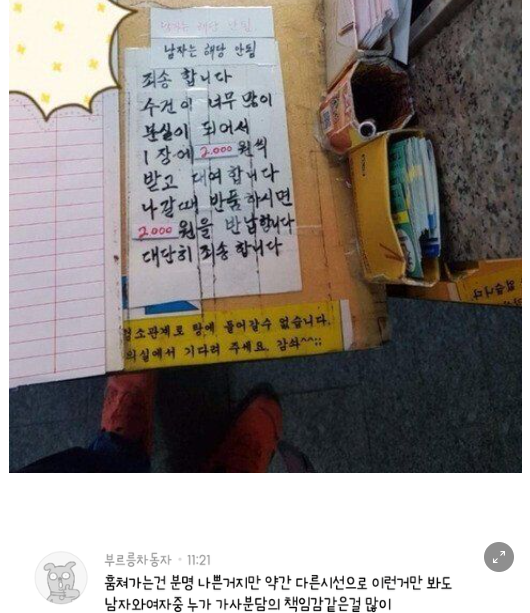 남자는 해당 안됨
남자는 해당 안됨
죄송 합니다
수건이 너무 많이
분실이 되어서
1장에 2.000 원씩
받고 대여 합니다
나갈때 반품 하시면
2000 원을 반납합니다
대단히 죄송 합니다
청소관계로 탕에 들어갈수 없습니다.
의실에서 기다려 주세요. 감솨^^;;
없습니다
부르릉차동자 · 11:21
훔쳐가는건 분명 나쁜거지만 약간 다른시선으로 이런거만 봐도
남자와여자중 누가 가사분담의 책임감같은걸 많이